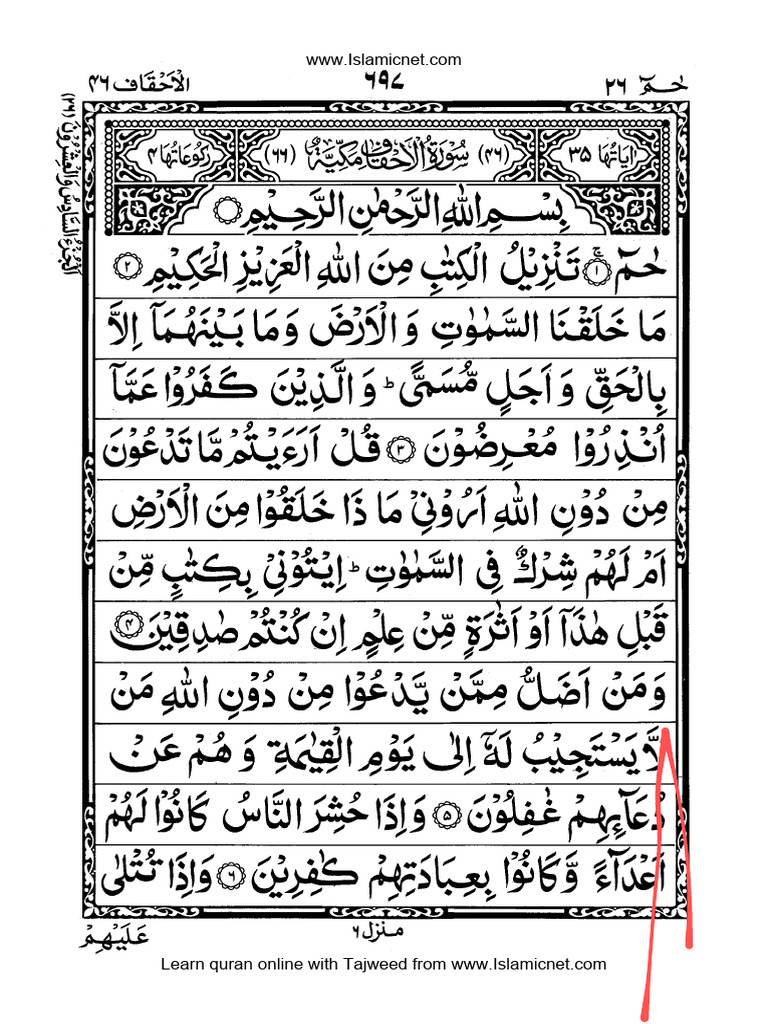 www.Islamicnet.com
حٰمٓ ٢٦
٦٩٧
الاحقاف ٤٦
اٰیَاتُهَا ٣٥
(٤٦) سُوْرَةُ الْاَحْقَافِ مَكِّیَّةٌ (٦٦)
رُكُوْعَاتُهَا ٤
بِسْمِ اللهِ الرَّحْمٰنِ الرَّحِیْمِ
حٰمٓ ۚ ١ تَنْزِیْلُ الْكِتٰبِ مِنَ اللهِ الْعَزِیْزِ الْحَكِیْمِ ٢
مَا خَلَقْنَا السَّمٰوٰتِ وَ الْاَرْضَ وَ مَا بَیْنَهُمَاۤ اِلَّا
بِالْحَقِّ وَ اَجَلٍ مُّسَمًّی ؕ وَ الَّذِیْنَ كَفَرُوْا عَمَّاۤ
اُنْذِرُوْا مُعْرِضُوْنَ ٣ قُلْ اَرَءَیْتُمْ مَّا تَدْعُوْنَ
مِنْ دُوْنِ اللهِ اَرُوْنِیْ مَا ذَا خَلَقُوْا مِنَ الْاَرْضِ
اَمْ لَهُمْ شِرْكٌ فِی السَّمٰوٰتِ ؕ اِیْتُوْنِیْ بِكِتٰبٍ مِّنْ
قَبْلِ هٰذَاۤ اَوْ اَثٰرَةٍ مِّنْ عِلْمٍ اِنْ كُنْتُمْ صٰدِقِیْنَ ٤
وَ مَنْ اَضَلُّ مِمَّنْ یَّدْعُوْا مِنْ دُوْنِ اللهِ مَنْ
لَّا یَسْتَجِیْبُ لَهٗۤ اِلٰی یَوْمِ الْقِیٰمَةِ وَ هُمْ عَنْ
دُعَآىِٕهِمْ غٰفِلُوْنَ ٥ وَ اِذَا حُشِرَ النَّاسُ كَانُوْا لَهُمْ
اَعْدَآءً وَّ كَانُوْا بِعِبَادَتِهِمْ كٰفِرِیْنَ ٦ وَ اِذَا تُتْلٰی
منزل ٦
عَلَیْهِمْ
اَلْجُزْءُ السَّادِسُ وَالْعِشْرُوْنَ (٢٦)
Learn quran online with Tajweed from www.Islamicnet.com